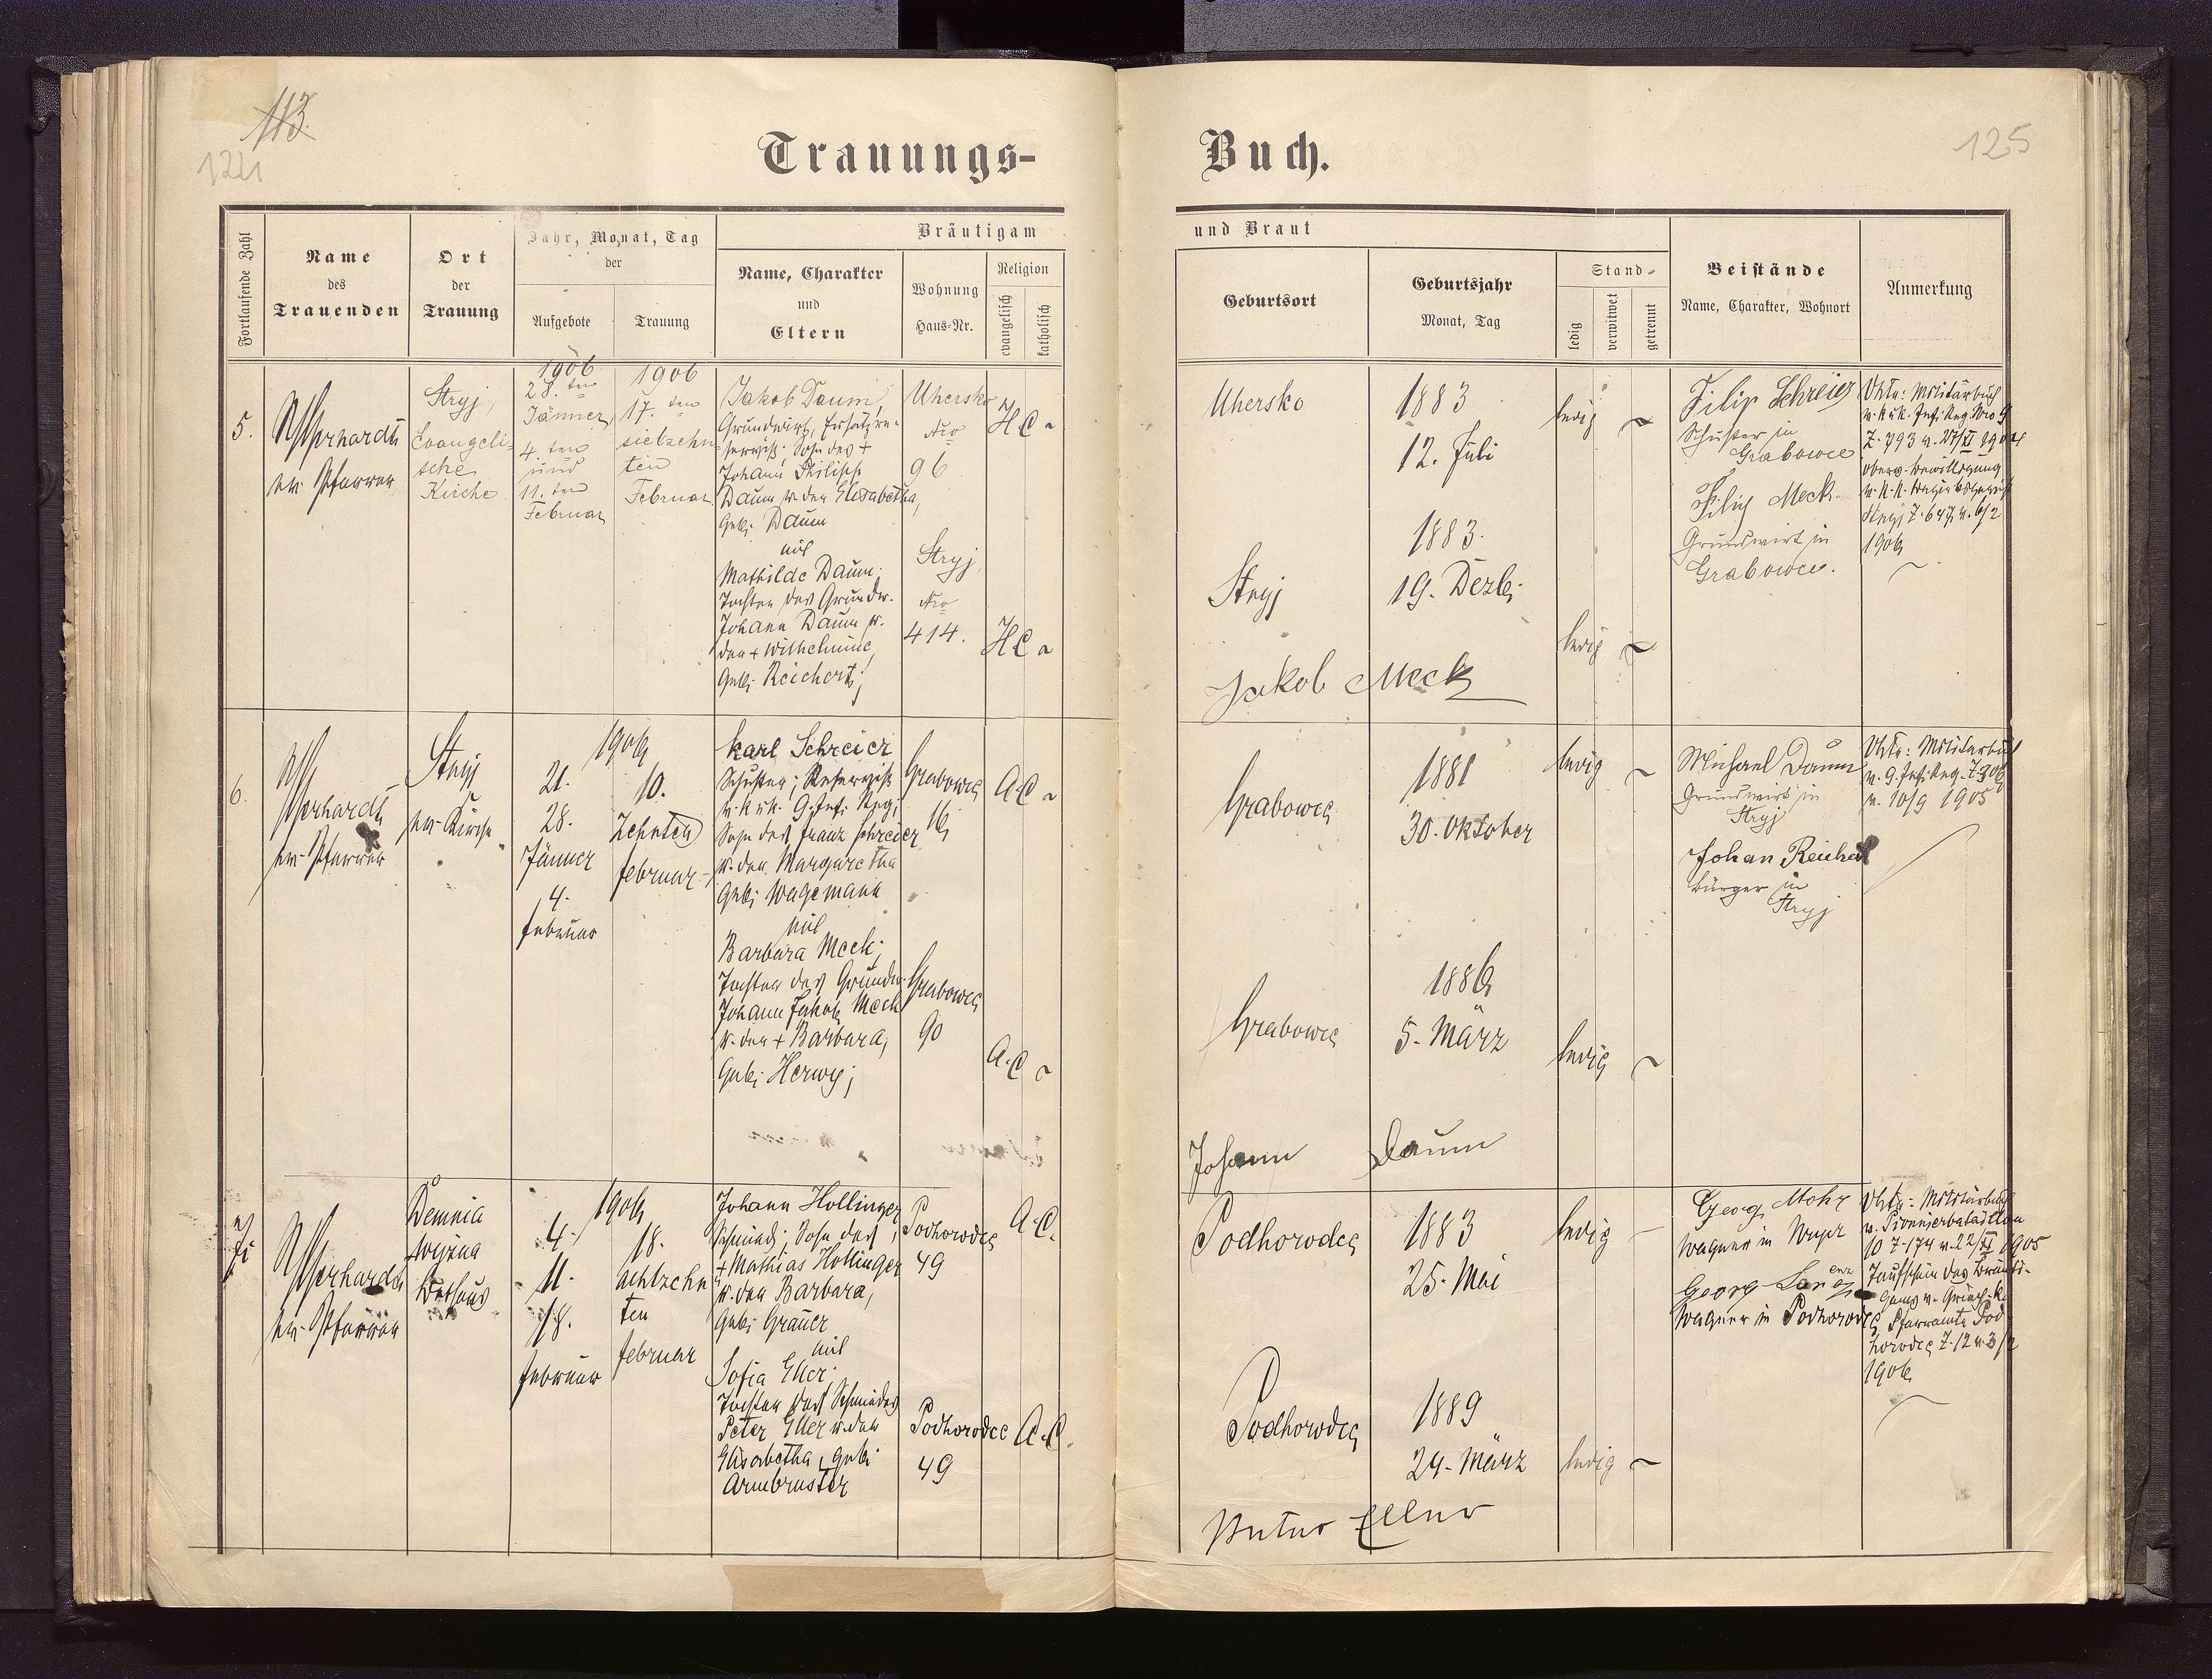 113.
124
125
Trauungs-Buch.
Fortlaufende Zahl
Name
des
Trauenden
Ort
der
Trauung
Jahr, Monat, Tag
der
Aufgebote
Trauung
Bräutigam und Braut
Name, Charakter
und
Eltern
Wohnung
Haus-Nr.
Religion
evangelisch
katholisch
Geburtsort
Geburtsjahr
Monat, Tag
Stand
ledig
verwitwet
getrennt
Beistände
Name, Charakter, Wohnort
Anmerkung
5.
ev. Pfarrer
Stryj,
Evangeli-
sche
Kirche
1906
28. ten
Jänner,
4. ten
und
11. ten
Februar
1906
17. ten
siebzehn-
ten
Februar
Jakob Daum,
Grundwirt, Ersatzre-
servist. Sohn des +
Johann Philipp
Daum u. der Elisabetha,
geb. Daum
mit
Mathilde Daum;
Tochter des Grundw.
Johann Daum u.
der + Wilhelmine,
geb. Reichert;
Uhersko
Nro
96
Stryj
Nro
414.
H.C.
H.C.
Uhersko
1883
12. Juli
ledig
Stryj
1883.
19. Dezb.
ledig
Jakob Meck
Filip Schreier
Schuster in
Grabowce
Filip Meck
Grundwirt in
Grabowce.
Militärbuch
v. k. u. k. Inf. Reg. Nro 9
Z. 793 v. 27/XI 1904
Stryj Z. 647 v. 6/2
1906
6.
ev. Pfarrer
Stryj
ev. Kirche
1906
21.
28.
Jänner
4.
Februar
10.
Zehnten
Februar
Karl Schreier
Schuster; Reservist
v. k. u. k. 9. Inf. Reg.;
Sohn des Franz Schreier
u. der Margaretha
geb. Wagemann
mit
Barbara Meck;
Tochter des Grundw.
Johann Jakob Meck
u. der + Barbara,
geb. Herwy;
Grabowce
16
Grabowce
90
A.C.
A.C.
Grabowce
1881
30. Oktober
ledig
Grabowce
1886
5. März
ledig
Johann Daum
Michael Daum
Grundwirt in
Stryj
Johan Reichert
Bürger in
Stryj
Militärbuch
v. 9. Inf. Reg. Z. 306
v. 10/9 1905
7.
ev. Pfarrer
Demnia
wyżna
Bethaus
1906
4.
11.
18.
Februar
18.
achtzehn
ten
Februar
Johann Hollinger
Schmied; Sohn des
+ Mathias Hollinger
u. der Barbara,
geb. Grauer
mit
Sofia Eller;
Tochter des Schmiedes
Peter Eller u. der
Elisabetha, geb.
Armbruster
Podhorodce
49
Podhorodce
49
A.C.
A.C.
Podhorodce
1883
25. Mai
ledig
Podhorodce
1889
24. März
ledig
Georg Mohr
Wagner in
Georg
Wagner in Podhorodce
Militärbuch
v. Pionnierbataillon
10 Z. 174 v. 22/XI 1905
Taufschein des Bräuti-
gams v. Griech. k.
Pfarramte Pod-
horodce Z. 12 v. 3/2
1906